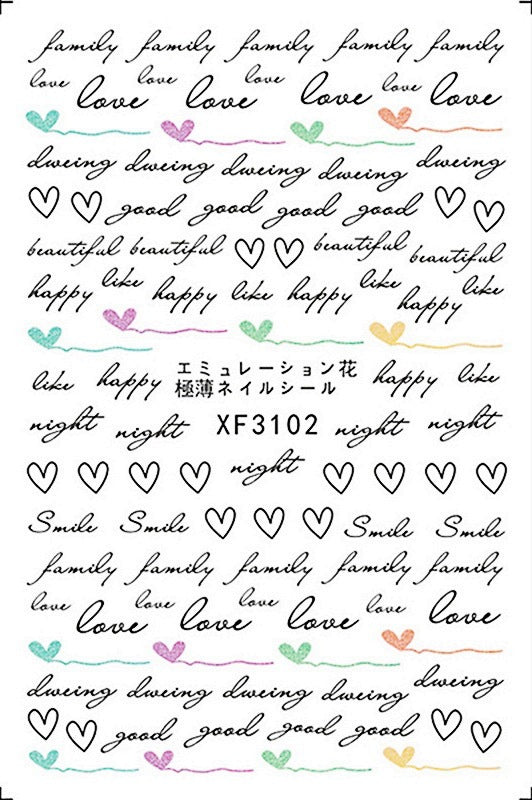 family family family family family
love love love love love love love
dweing dweing dweing dweing dweing
good good good good
beautiful beautiful beautiful beautiful
happy like happy like happy like happy like
エミュレーション花
極薄ネイルシール
like happy happy like
night night XF3102 night night
night
Smile Smile Smile Smile
family family family family family
love love love love love love love love
dweing dweing dweing dweing dweing
good good good good